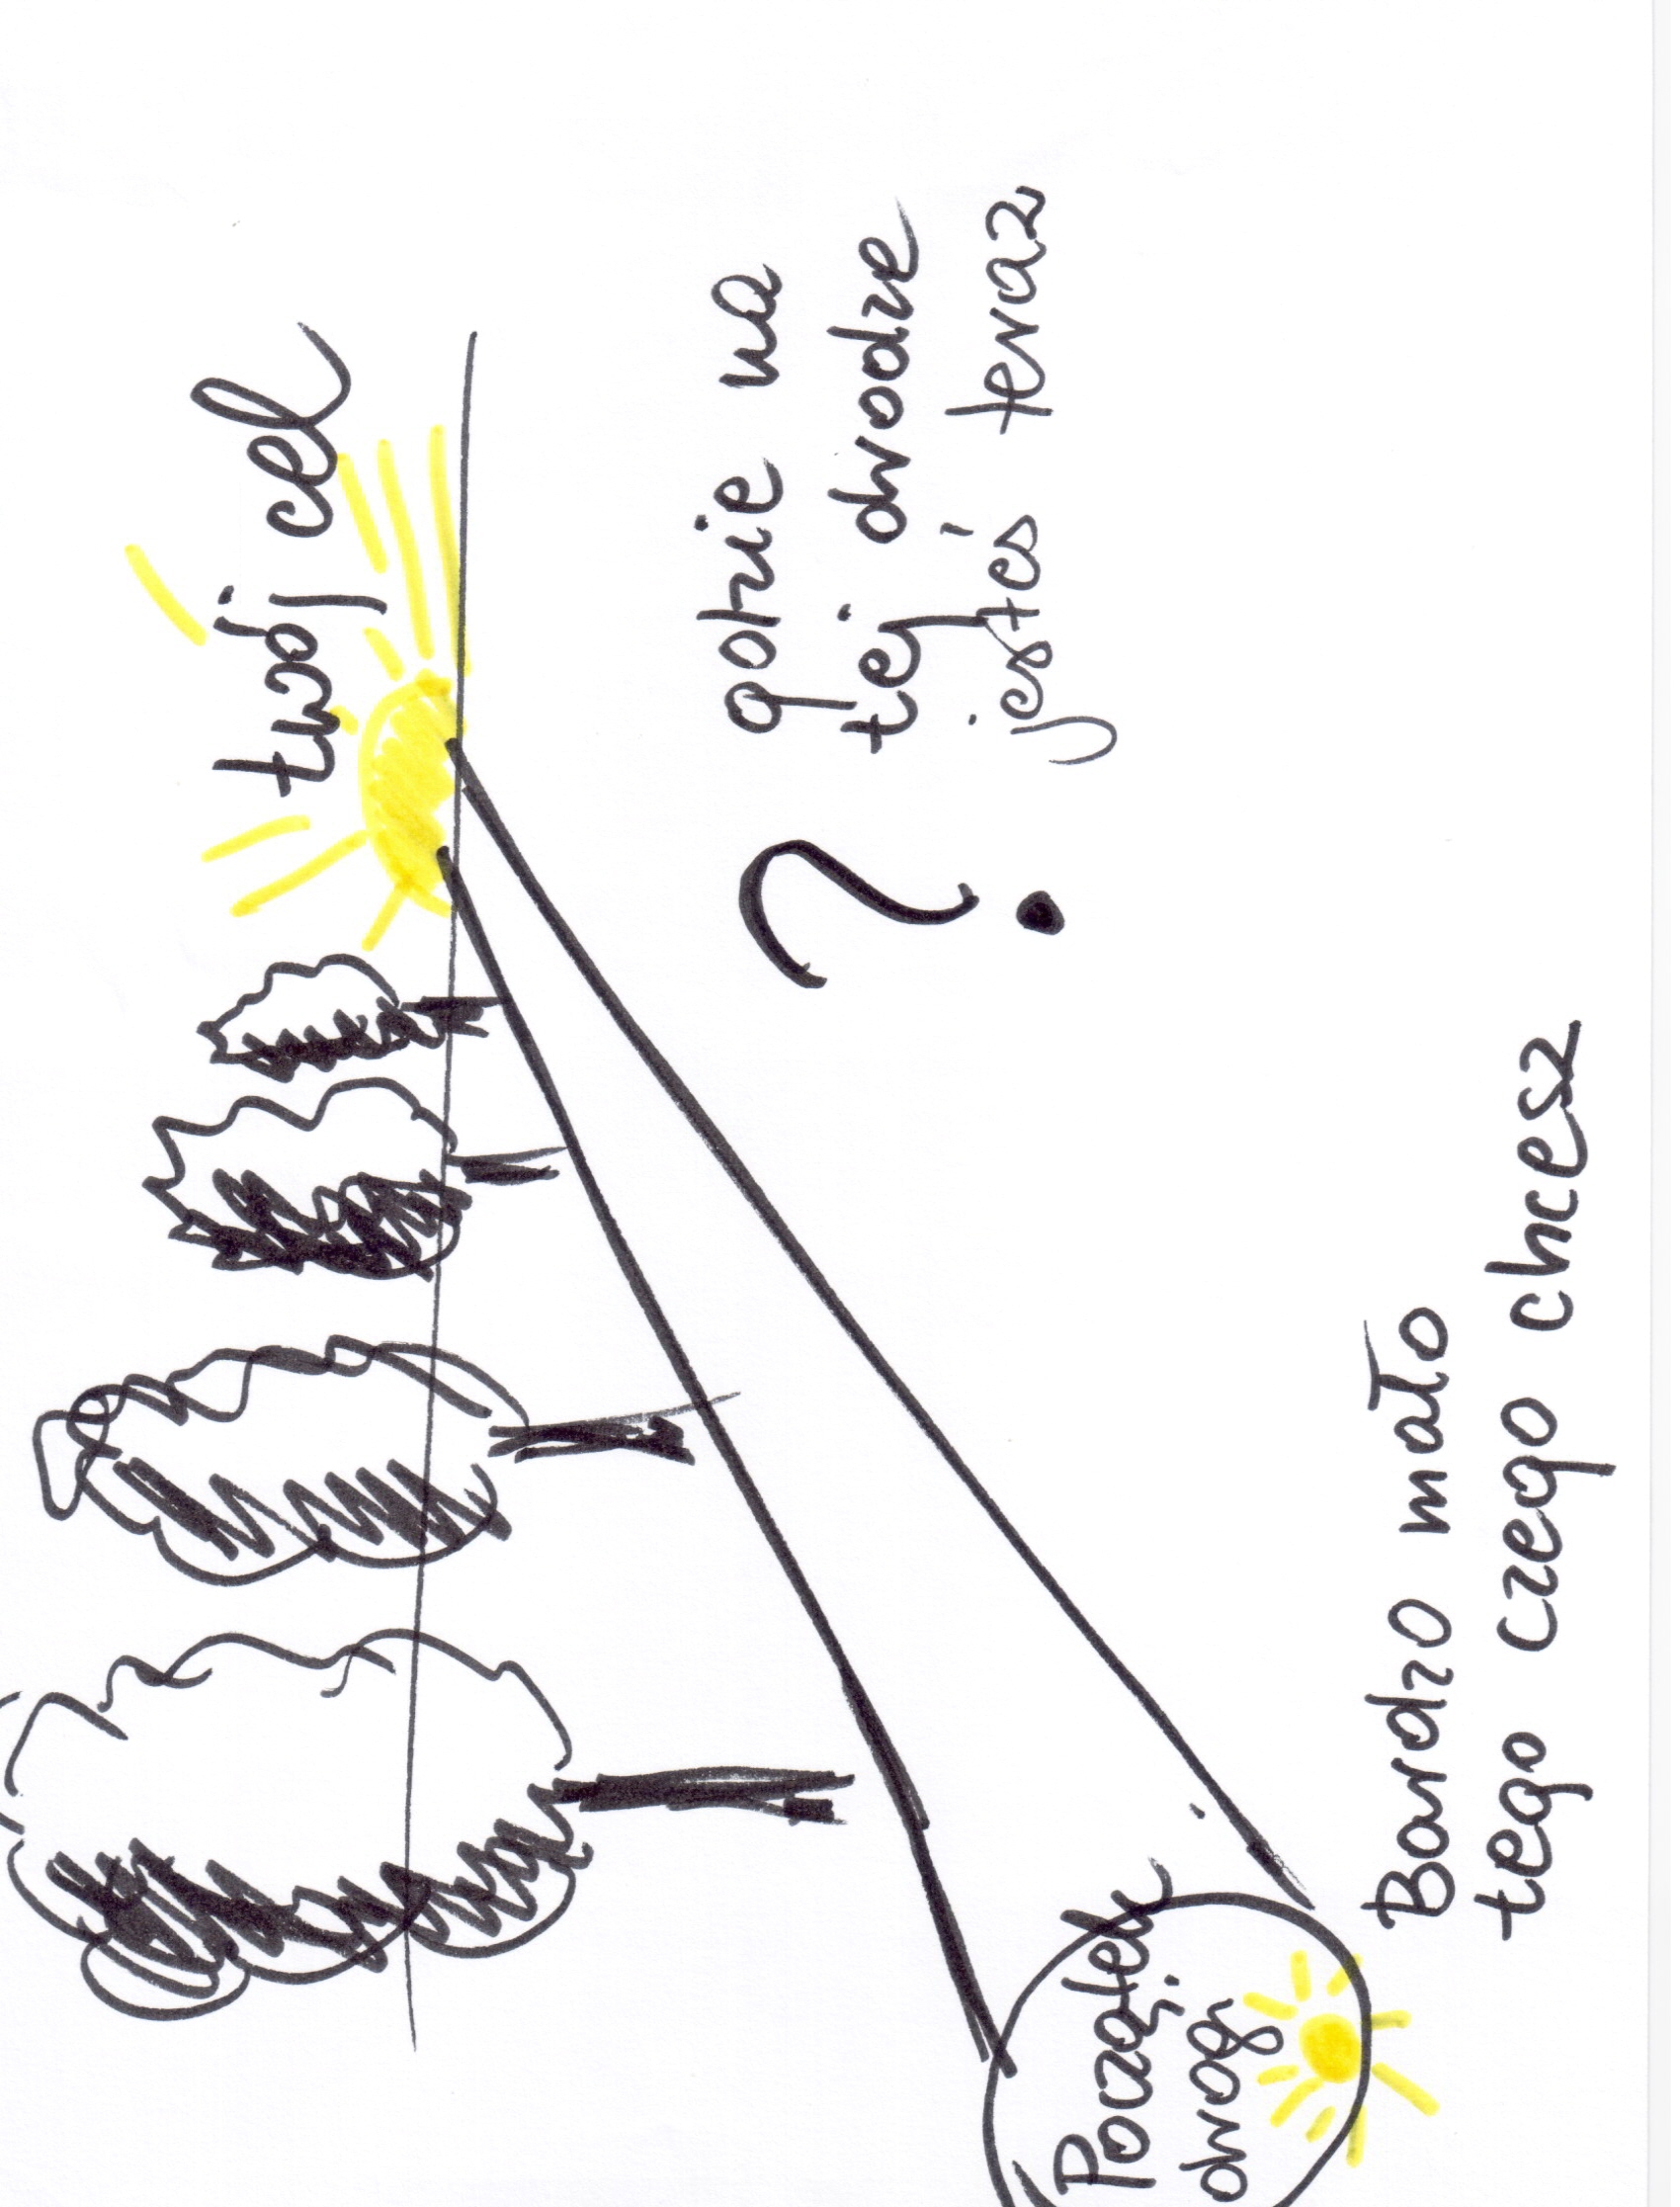 twój cel
gdzie na
tej drodze
jesteś teraz
?
Początek
drogi
Bardzo mało
tego czego chcesz